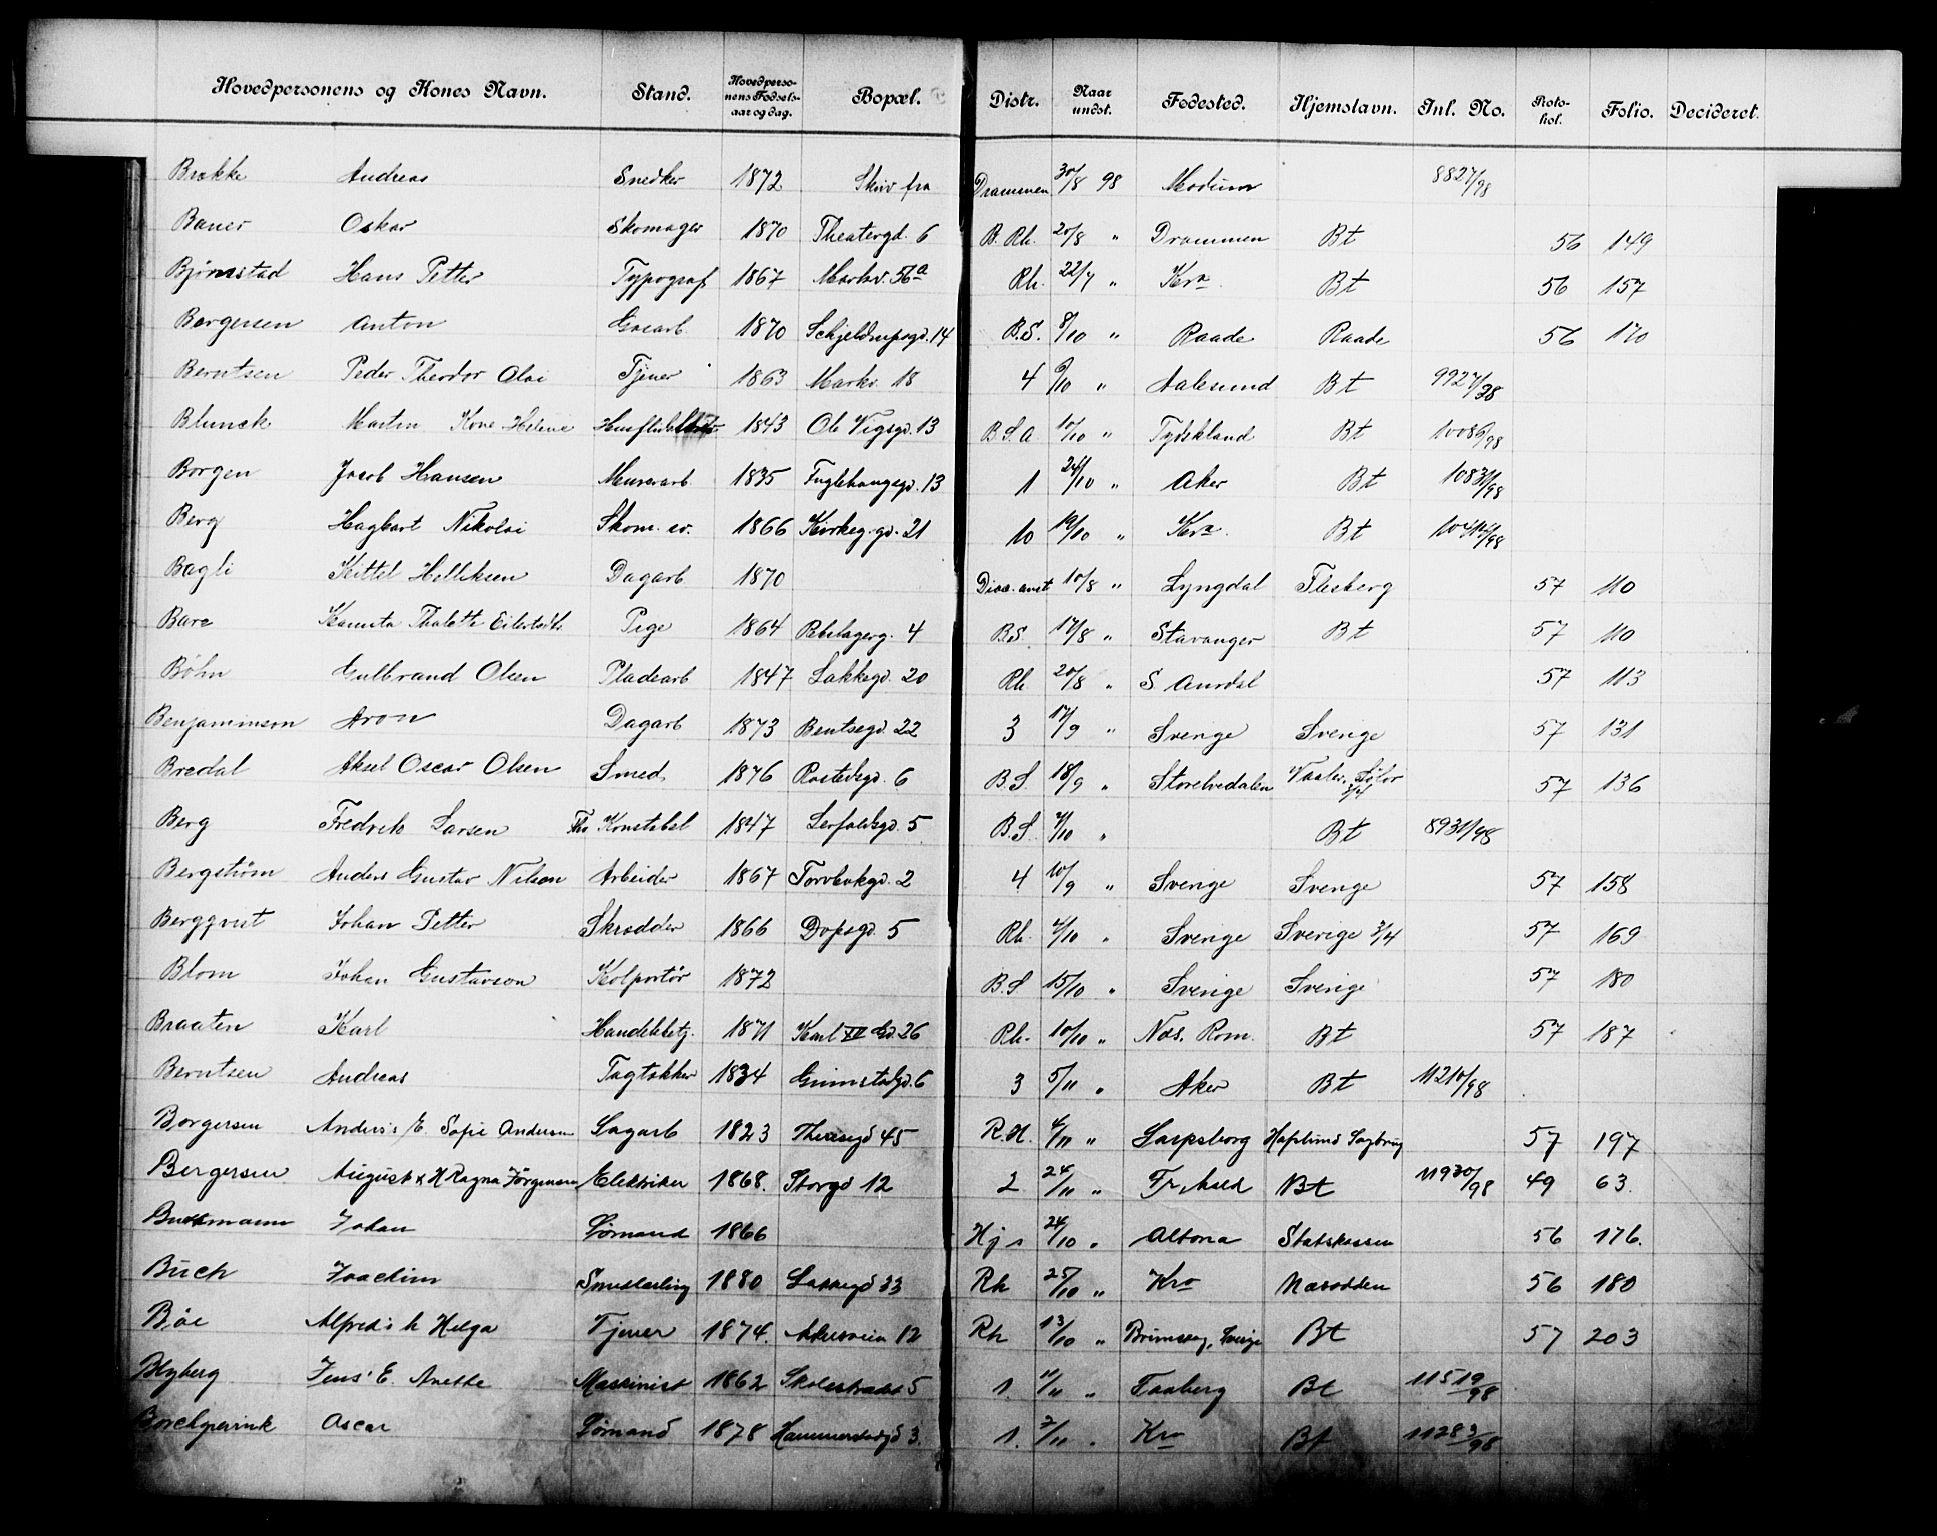 Hovedpersonens og Kones Navn. Stand. Hovedperso-nens Fødsels-aar og dag. Bopæl. Distr. Naar undst. Fødested. Hjemstavn. Inl. No. Proto-kol. Folio. Decideret.
Brække Andreas Snedker 1872 Skriv fra Drammen 30/8 98 Modum 8827/98
Bauer Oskar Skomager 1870 Theatergd. 6 B. Rh. 20/8 " Drammen Bt 56 149
Bjørnstad Hans Petter Typograf 1867 Markv. 56a Rh. 22/7 " Kra. Bt 56 157
Børgersen Anton Gasarb. 1870 Schjeldrupsgd. 14 B.S. 8/10 " Raade Raade 56 170
Berntsen Peder Theodor Olai Tjener 1863 Markv. 18 4 6/10 " Aalesund Bt 9927/98
Blunck Martin Kone Helene 1843 Ole Vigsgd. 13 B.S.a 10/10 " Tydskland Bt 10086/98
Borgen Jacob Hansen Murerarb 1835 Fuglehaugsgd. 13 1 24/10 " Aker Bt 10831/98
Berg Hagbart Nikolai Skom. sv. 1866 Kirkeg.gd. 21 10 19/10 " Kra. Bt
Bagli Kittil Helliksen Dagarb 1870 10/8 " Lyngdal Flesberg 57 110
Bare Thalette Pige 1864 4 B.S. 17/8 " Stavanger Bt 57 110
Bøhn Gulbrand Olsen Pladearb 1847 Lakkegd. 20 Rh. 20/8 " S. Aurdal 57 113
Benjaminson Aron Dagarb 1873 Bentsegd. 22 3 17/9 " Sverige Sverige 57 131
Bredal Aksel Oscar Olsen Smed 1876 Rostedsgd. 6 B.S. 18/9 " Storelvedalen Vaaler, Solør 3/4 57 136
Berg Fredrik Larsen Konstabel 1847 5 B.S. 4/10 " Bt 8931/98
Bergstrøm Anders Gustav Nilsen Arbeider 1867 Torvbakgd. 2 4 10/9 " Sverige Sverige 57 158
Bergqvist Johan Petter Skrædder 1866 Dopsgd. 5 Rh. 4/10 " Sverige Sverige 3/4 57 169
Blom Johan Gustavson Kolportør 1872 B.S 15/10 " Sverige Sverige 57 180
Braaten Karl Handelsbetj. 1871 Karl XII Gd. 26 Rh. 10/10 " Næs. Rom. Bt 57 187
Berntsen Andreas Tagtækker 1834 Grimstadgd. 6 3 5/11 " Aker Bt 11210/98
Borgersen Anders's E. Sofie Andersen Sagarb 1823 Theresegd 45 R.H. 4/11 " Sarpsborg Hafslund Sagbrug 57 197
Bergersen August x H Ragna Jørgensen Elektriker 1868. Storgd 12 2 24/11 " Fr.hald Bt 11930/98 49 63.
Johan Sømand 1866 Hj s 24/10 " Altona Statskassen 56 176.
Buch Joachim Smedlærling 1880 Lakkegd 33 Rh 25/10 " Kra Næsodden 56 180
Bøe Alfred's h Helga Tjener 1874. Akersveien 12 Rh 13/10 " Bt 57 203
Blyberg Jens' E. Anette Maskinist 1862 Skolestrædet 5 1. 11/11 " Faaberg Bt 11519/98
Borchgrevink Oscar Sømand 1878 Hammerstadgd 3. 1. 2/11 " Kra Bt 11283/98